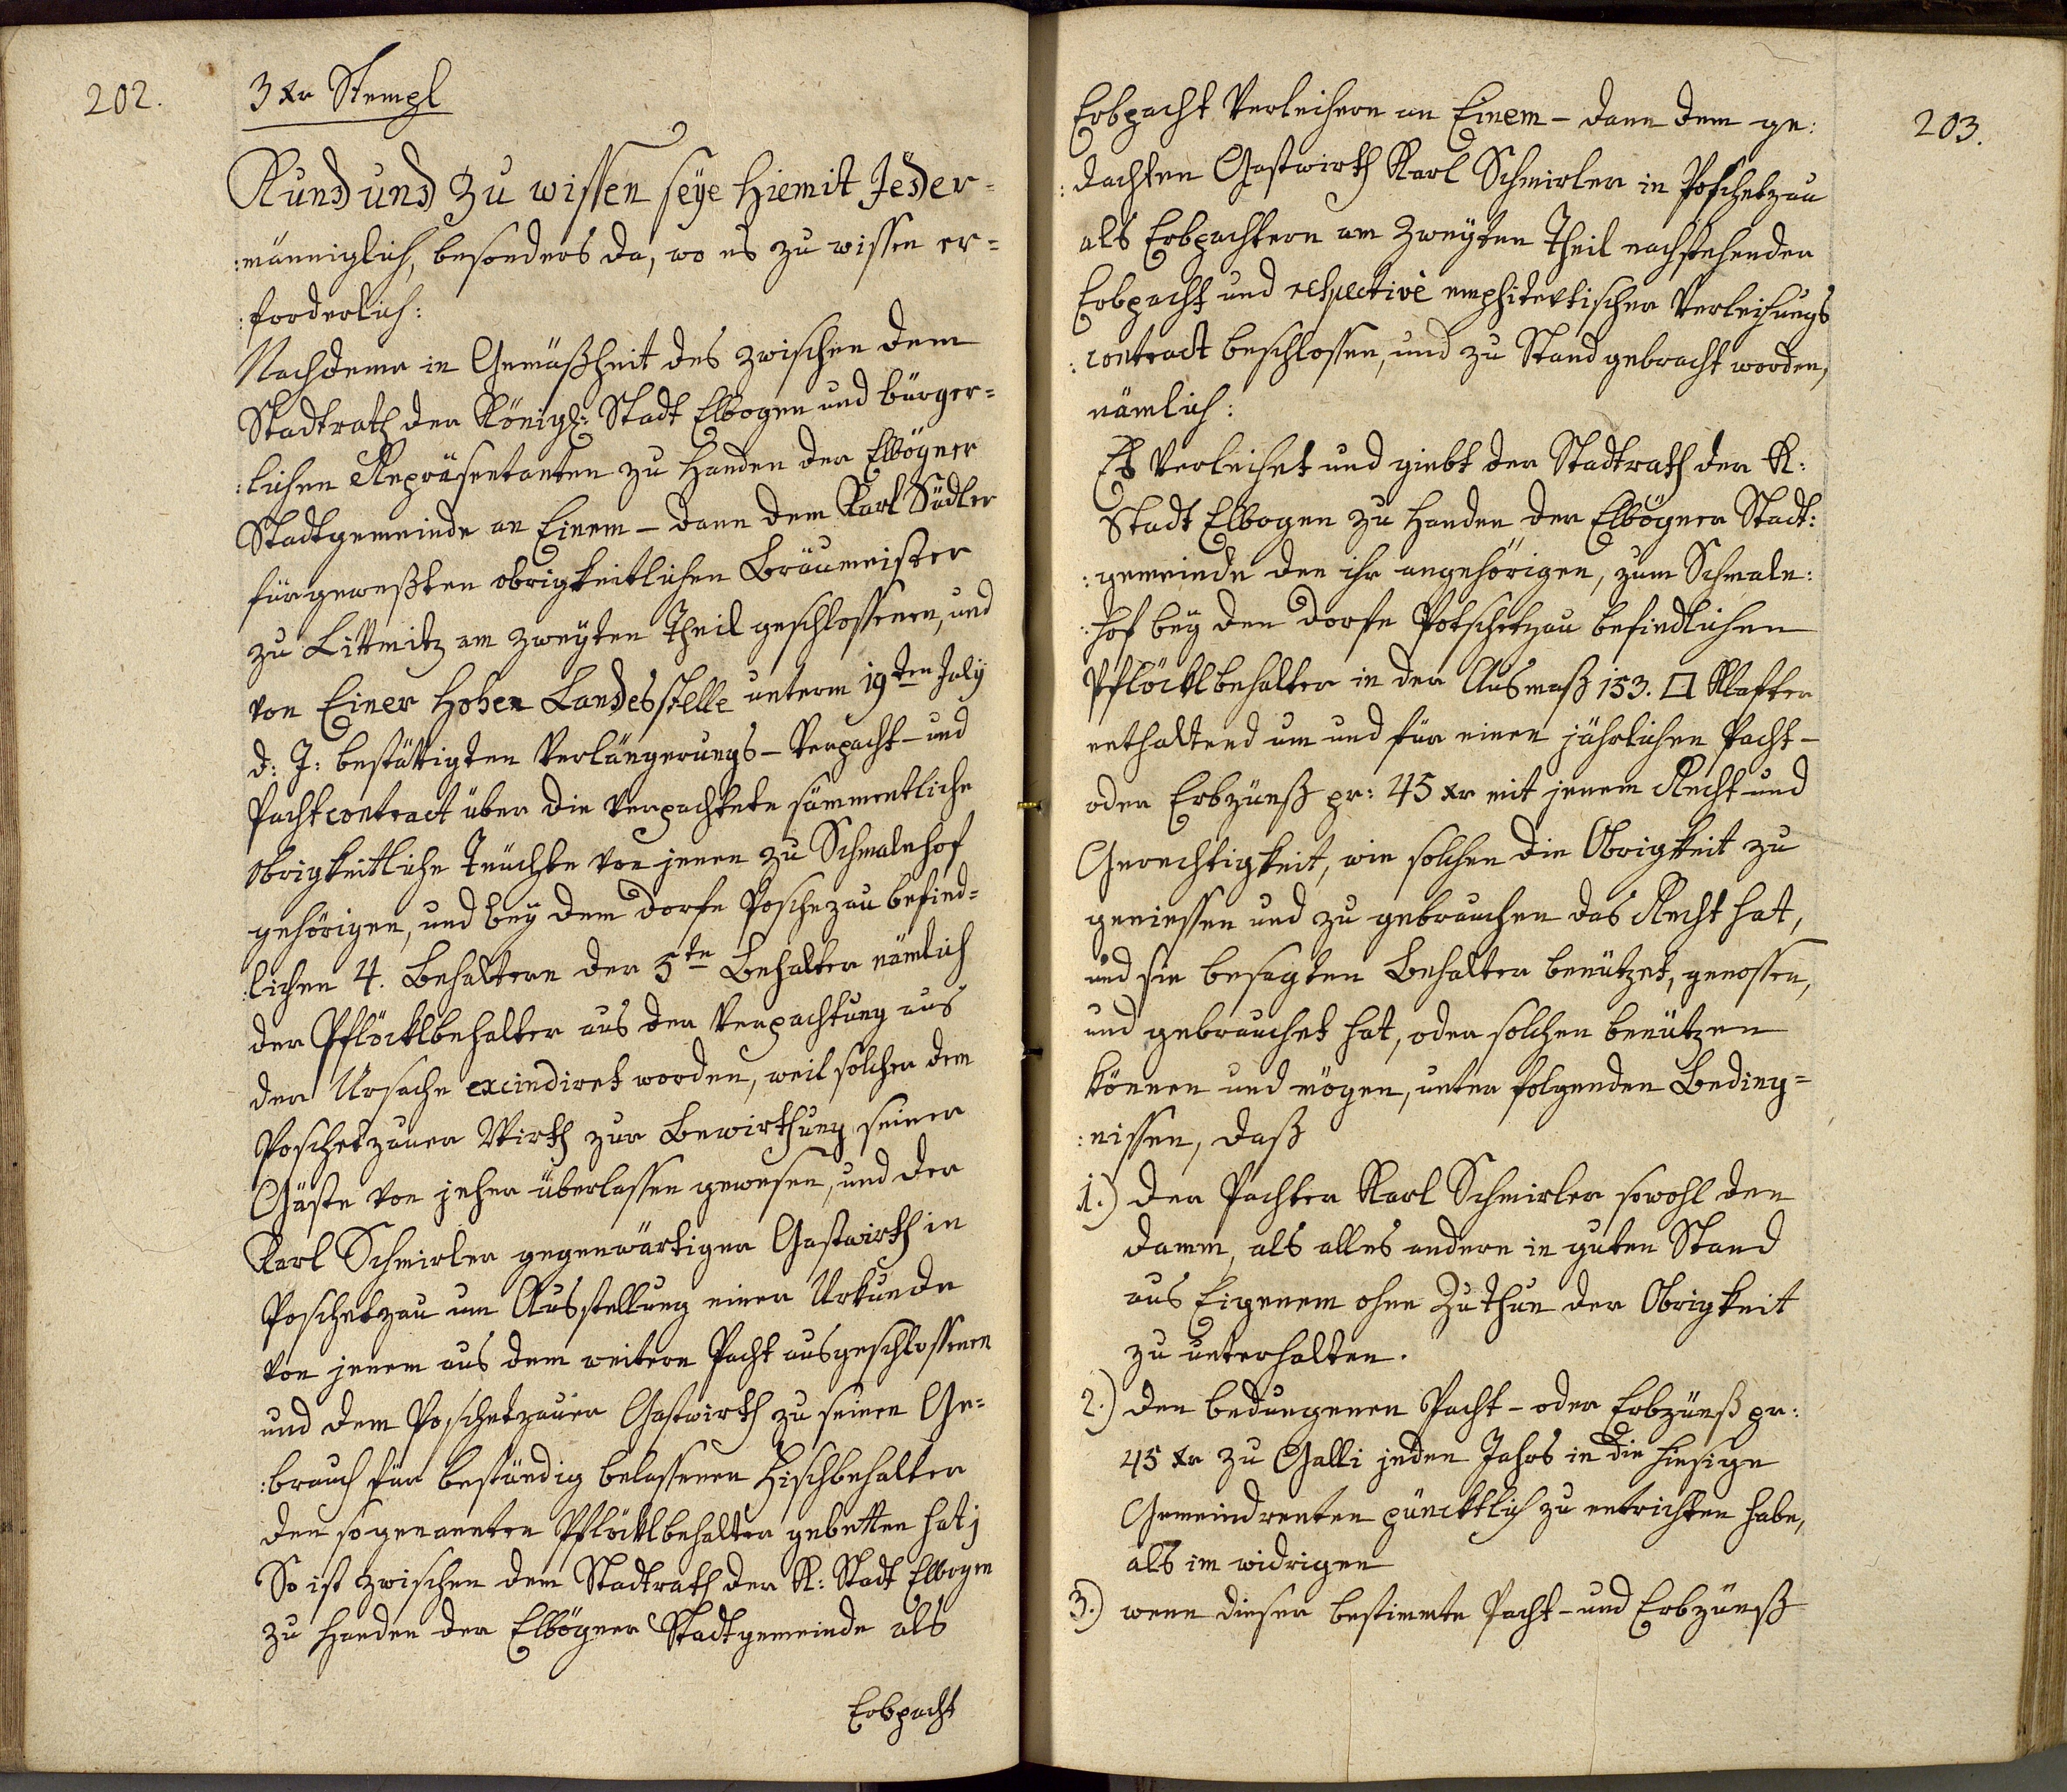 202.
3 xr Stempl
Kund und zu wissen seÿe hiemit Jeder=
:männiglich, besonders da, wo es zu wissen er=
:forderlich:
Nachdeme in Gemäßheit des zwischen dem
Stadtrath der Königl: Stadt Elbogen und bürger=
:lichen Repräsentanten zu Handen der Elbögner
Stadtgemeinde an Einem – dann dem Karl Südler
fürgeweßten obrigkeitlichen Bräumeister
zu Littmitz am zweÿten Theil geschlossenen, und
von Einer Hohen Landesstelle unterm 19ten July
d: J: bestättigten Verlängerungs – Verpacht – und
Pachtcontract über die verpachtete sämmentliche
obrigkeitliche Teüchte von jenen zu Schmalnhof
gehörigen, und beÿ dem Dorfe Poschezau befind=
:lichen 4. Behaltern der 5te Behalter nämlich
der Pflöcklbehalter aus der Verpachtung aus
der Ursache excindiret worden, weil solcher dem
Poschetzauer Wirth zur Bewirthung seiner
Gäste von jeher überlassen gewesen, und der
Karl Schmirler gegenwärtiger Gastwirth in
Poschetzau um Ausstellung einer Urkunde
von jenem aus dem weitern Pacht ausgeschlossenen
und dem Poschetzauer Gastwirth zu seinen Ge=
:brauch für beständig belassenen Fischbehalter
den sogenannten Pflöcklbehalter gebetten hat;
So ist zwischen dem Stadtrath der K: Stadt Elbogen
zu Handen der Elbögner Stadtgemeinde als
Erbpacht
203.
Erbpacht Verleihern an Einem – dann dem ge:
:dachten Gastwirth Karl Schmirler in Poschetzau
als Erbpachtern am zweÿten Theil nachstehender
Erbpacht und respective emphitevtischer Verleihungs
:contract beschlossen, und zu Stand gebracht worden,
nämlich:
Es verleihet und giebt der Stadtrath der K:
Stadt Elbogen zu Handen der Elbögner Stadt:
:gemeinde den ihr angehörigen, zum Schmaln:
:hof beÿ den Dorfe Potschetzau befindlichen
Pflöcklbehalter in der Ausmaß 153. □ Klafter
enthaltend um und für einen jährlichen Pacht –
oder Erbzünß pr: 45 xr mit jenem Recht und
Gerechtigkeit, wie solchen die Obrigkeit zu
geniessen und zu gebrauchen das Recht hat,
und sie besagten Behalter benützet, genossen,
und gebrauchet hat, oder solchen benützen
können und mögen, unter folgenden Beding=
:nissen, daß
1.) der Pachter Karl Schmirler sowohl den
Damm, als alles andere in guten Stand
aus Eigenem ohne Zuthun der Obrigkeit
zu unterhalten.
2.) den bedungenen Pacht – oder Erbzünß pr:
45 xr zu Galli jeden Jahrs in die hiesige
Gemeindrenten pünktlich zu entrichten habe,
als im widrigen
3.) wenn dieser bestimmte Pacht – und Erbzünß